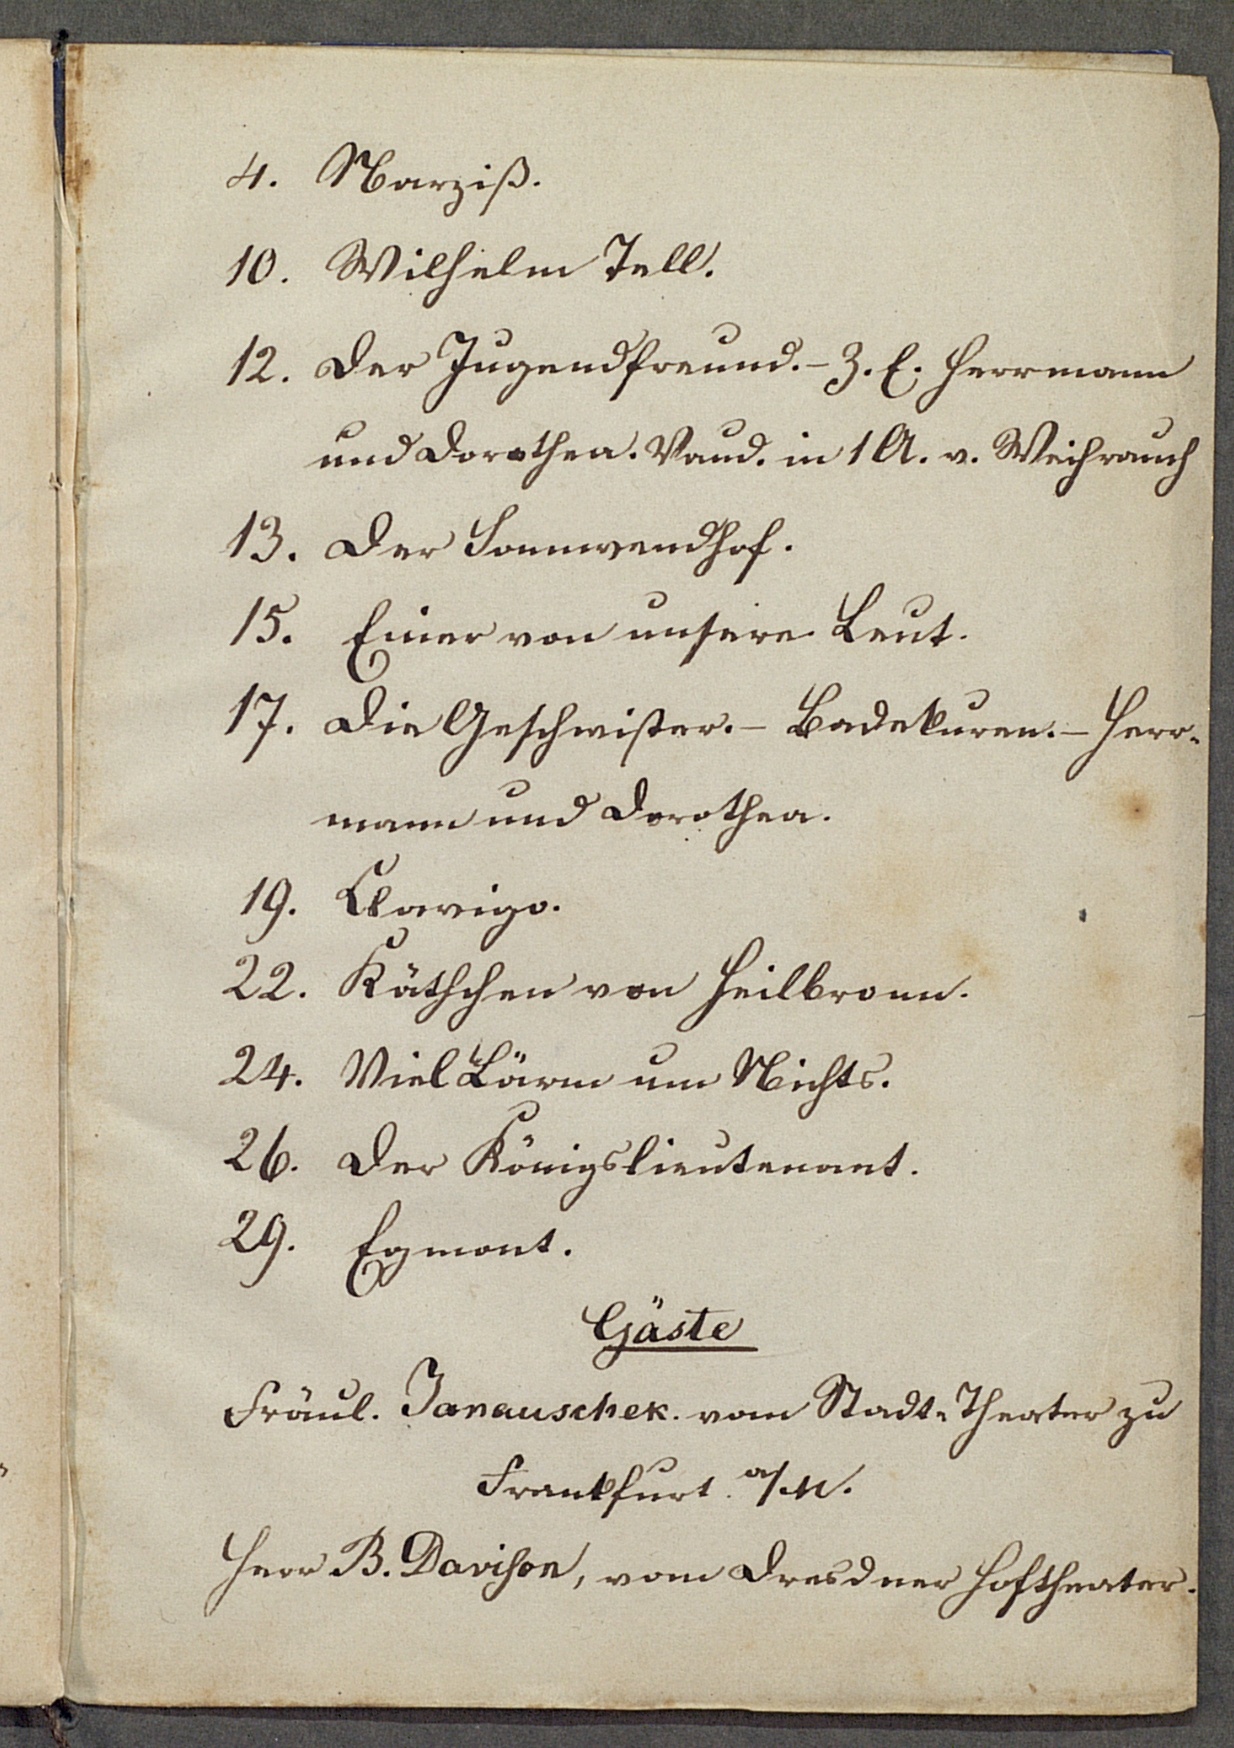 4. Narziß.
10. Wilhelm Tell.
12. Der Jugendfreund. - Z. E. Herrmann
und Dorothea. Vaud. in 1 A. v. Weihrauch
13. Der Sonnwendhof.
15. Einer von unsere Leut.
17. Die Geschwister. - Badekuren. - Herr-
mann und Dorothea.
19. Clavigo.
22. Käthchen von Heilbronn.
24. Viel Lärm um Nichts.
26. Der Königslieutenant.
29. Egmont.
Gäste
Fräul. Janauschek. vom Stadt-Theater zu
Frankfurt a/M.
Herr B. Davison, vom Dresdner Hoftheater.